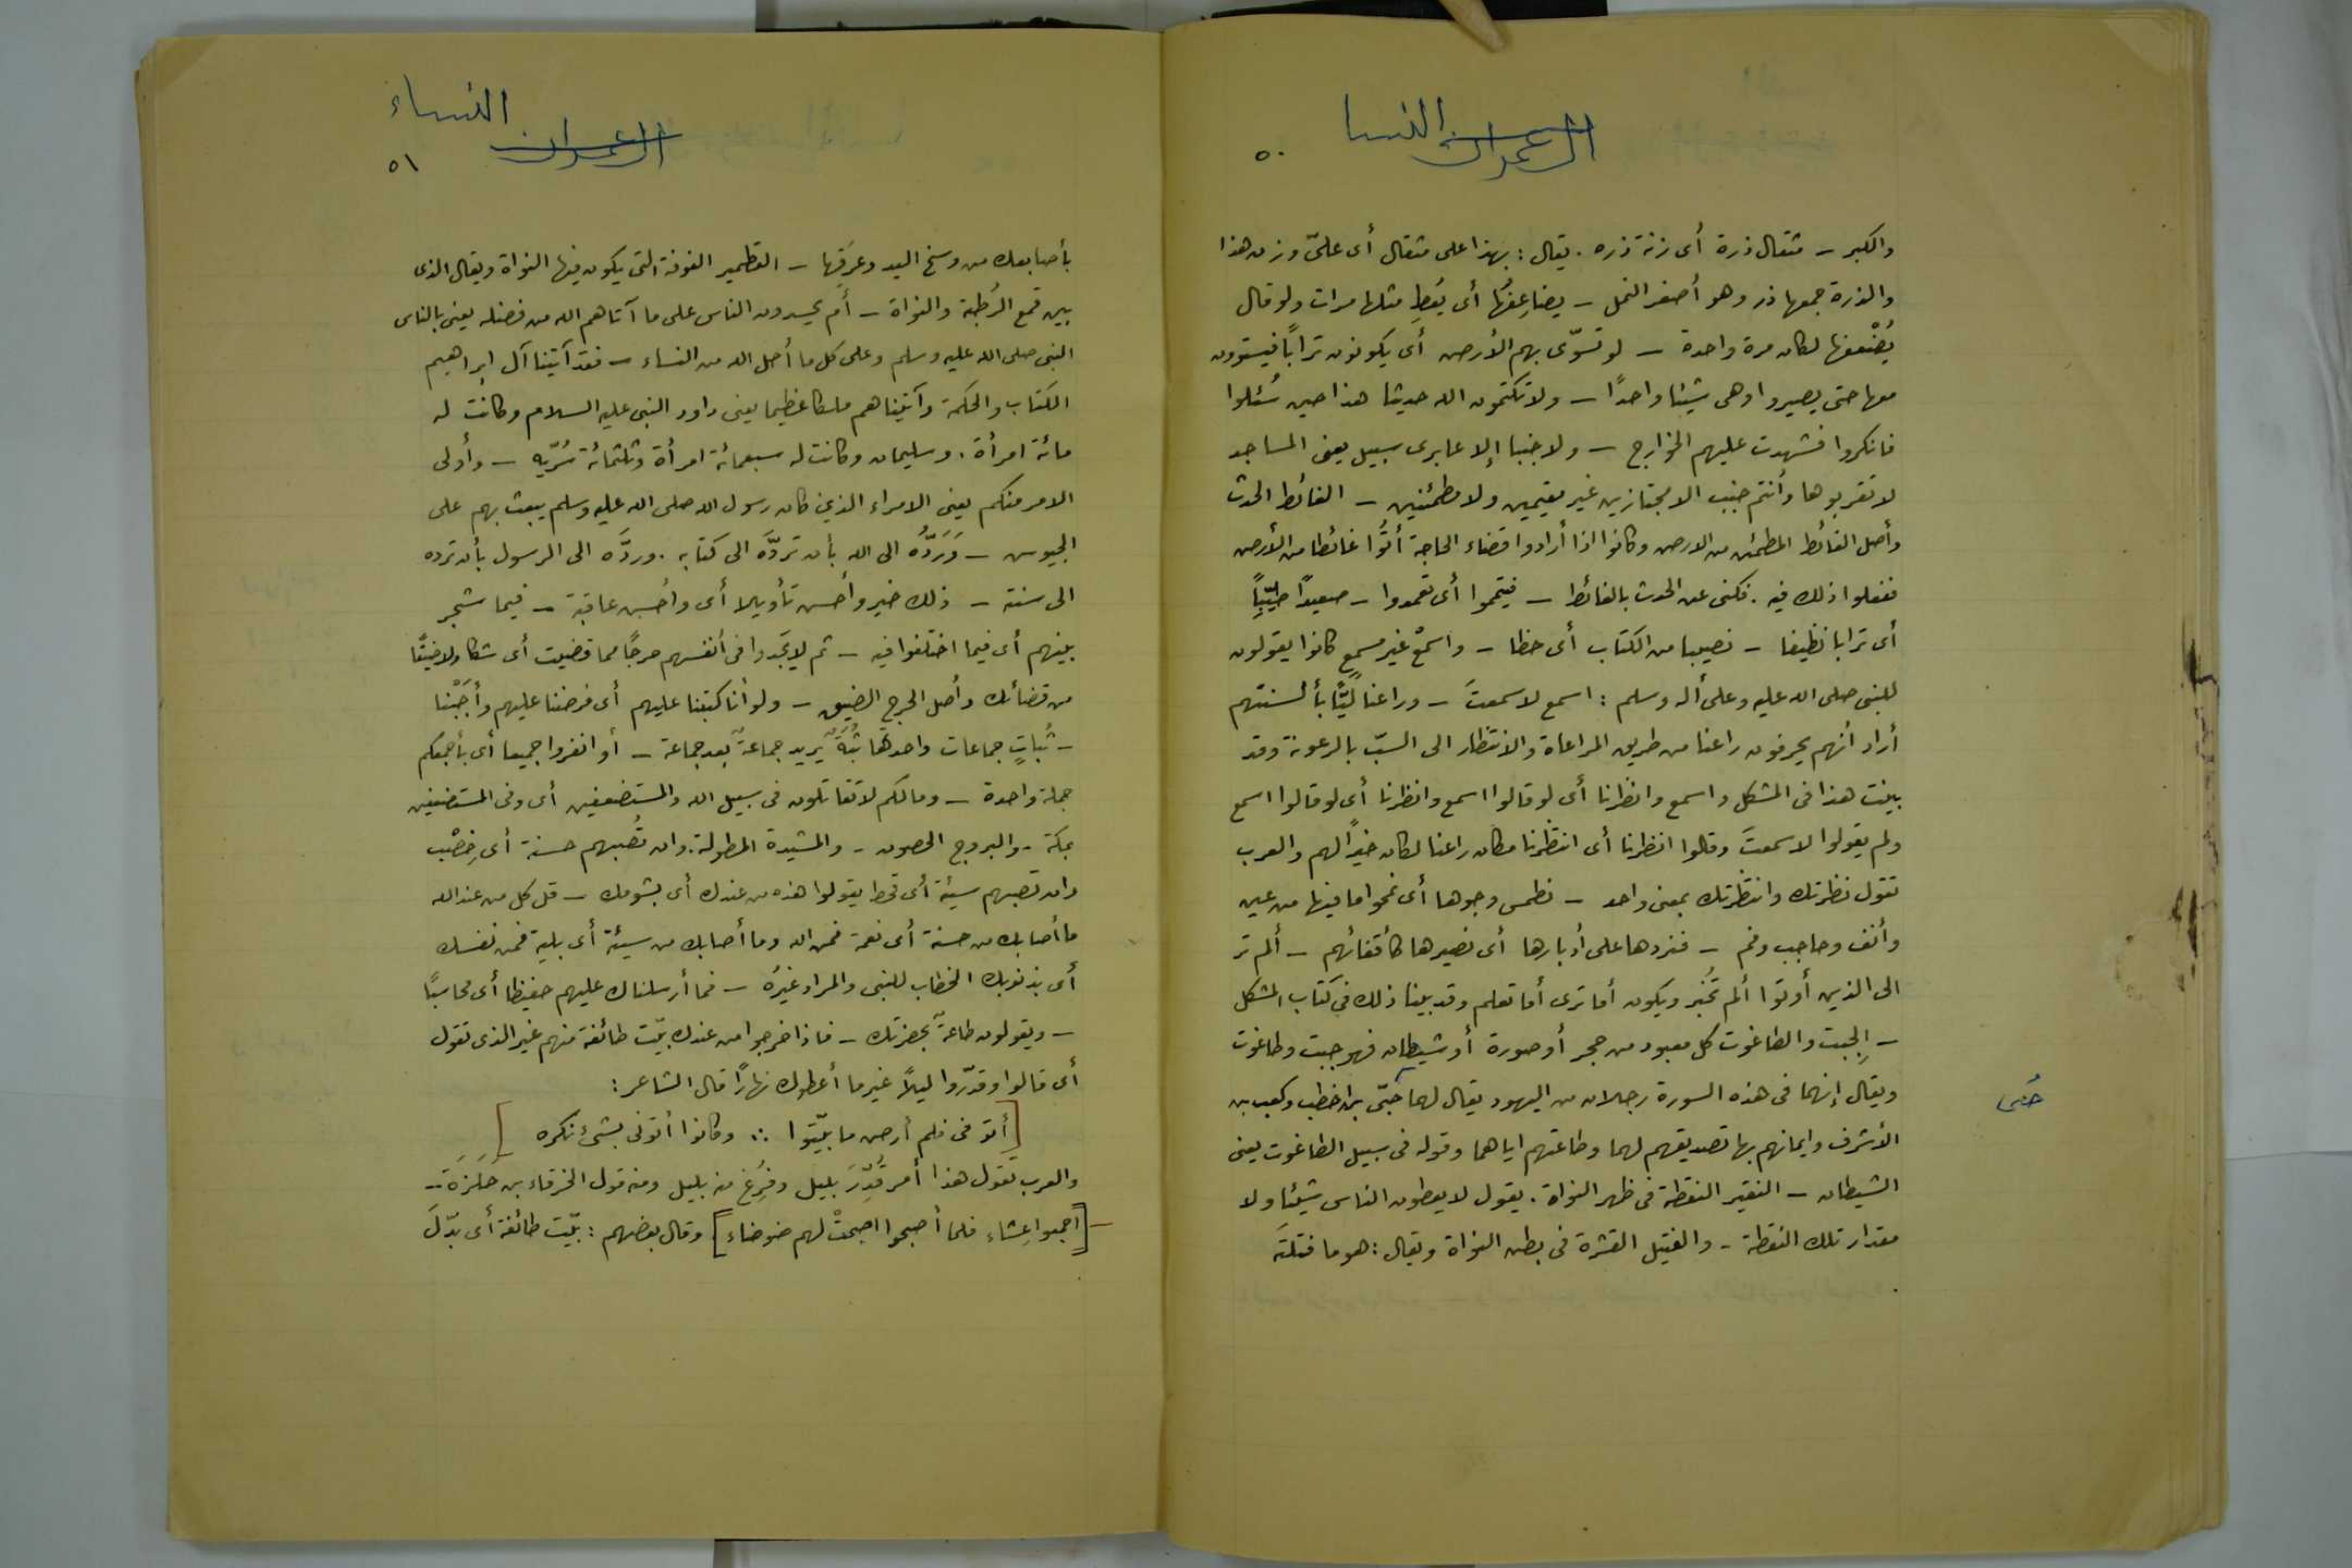 ال عمران النسا
٥٠
والكبر – مثقال ذرة أى زنة ذره . يقال : هذا على مثقال أى علىّ وزن هذا
والذرة جمعها ذر وهو أصغر النمل – يضاعِفْها أى يُعطِ مثلها مرات ولو قال
يُضْعفها لكان مرة واحدة – لو تسوّى بهم الأرض أى يكونون تراباً فيستوون
معها حتى يصيروا وهى شيئا واحدًا – ولا تكتمون الله حديثا هذا حين سُئلوا
فانكروا فشهدت عليهم الجوارح – ولا جنبا إلا عابرى سبيل يعنى المساجد
لا تقربوها وأنتم جنب الا مجتازين غير مقيمين ولا مطمئنين – الغائط الحدث
وأصل الغائط المطمئن من الارض وكانوا اذا أرادوا قضاء الحاجة أتَوا غائطا من الأرض
ففعلوا ذلك فيه . فكنى عن الحدث بالغائط – فتيمموا أى تعمدوا – صعيدًا طيّباً
أى ترابا نظيفا – نصيبا من الكتاب أى حظا – واسمَعْ غير مسمع كانوا يقولون
للنبى صلى الله عليه وعلى أله وسلم : اسمع لا سمعتَ – وراعنا ليًّا بألسنتهم
أراد أنهم يحرفون راعنا من طريق المراعاة والانتظار الى السبّ بالرعونة وقد
بينت هذا فى المشكل واسمع وانظرنا أى لو قالوا اسمع وانظرنا أى لو قالوا اسمع
ولم يقولوا لا سمعتَ وقالوا انظرنا أى انتظرنا مكان راعنا لكان خيرًا لهم والعرب
تقول نظرتك وانتظرتك بمعنى واحد – نطمس وجوها أى نمحوا ما فيها من عين
وأنف وحاجب وفم – فنردها على أدبارها أى نصيرها كأقفائهم – ألم تر
الى الذين أوتوا ألم تُخبر ويكون أما ترى أما تعلم وقد بينا ذلك فى كتاب المشكل
– الجِبت والطاغوت كل معبود من حجر أو صورة أو شيطان فهو جبت وطاغوت
ويقال إنهما فى هذه السورة رجلان من اليهود يقال لهما حيّى بن اخطب وكعب بن
حُيى
الأشرف وايمانهم بها تصديقهم لهما وطاعتهم اياهما وقوله فى سبيل الطاغوت يعنى
الشيطان – النقير النقطة فى ظهر النواة . يقول لا يعطون الناس شيئا ولا
مقدار تلك النقطة – والفتيل القشرة فى بطن النواة ويقال : هو ما فتلتَه
ال عمران النساء
٥١
بأصابعك من وسخ اليد وعَرَقها – القطمير الفوفة التى يكون فيها النواة ويقال الذى
بين قمع الرُطبة والنواة – أم يحسدون الناس على ما آتاهم الله من فضله يعنى بالناس
النبى صلى الله عليه وسلم وعلى كل ما أحل الله من النساء – فقد آتينا آل ابراهيم
الكتاب والحكمة وآتيناهم ملكا عظيما يعنى داود النبى عليه السلام وكانت له
مائة امرأة . وسليمان وكانت له سبعمائة امرأة وثلثمائة سُرّيه – وأولى
الامر منكم يعنى الامراء الذين كان رسول الله صلى الله عليه وسلم يبعث بهم على
الجيوس – وَرَدُّه الى الله بأن تردَّه الى كتابه . وردَّه الى الرسول بأن ترده
الى سنته – ذلك خير وأحسن تأويلا أى وأحسن عاقبة – فيما شجر
بينهم أى فيما اختلفوا فيه – ثم لا يَجدوا فى أنفسهم حرجًا مما قضيت أى شكا ولا ضيقًا
من قضائك وأصل الحرج الضيق – ولو أنا كتبنا عليهم أى فرضنا عليهم وأجَبْنا
– ثُباتٍ جماعات واحدها ثُبَة يريد جماعةً بعد جماعة – أو انفروا جميعا أى بأجمعكم
جملة واحدة – وما لكم لا تقاتلون فى سبيل الله والمستضعفين أى وفى المستضعفين
بمكة – والبروج الحصون – والمشيدة المطولة . وان تُصبهم حسنة أى خِصْب
وان تصبهم سيئة أى قحط يقولوا هذه من عندك أى بشومك – قل كل من عند الله
ما أصابك من حسنة أى نعمة فمن الله وما أصابك من سيئة أى بلية فمن نفسك
أى بذنوبك الخطاب للنبى والمراد غيرُه – فما أرسلناك عليهم حفيظا أى محاسبًا
– ويقولون طاعةٌ بحضرتك – فاذا خرجوا من عندك بيّت طائفة منهم غير الذى تقول
أى قالوا وقدّروا ليلًا غير ما أعطوك نهارًا قال الشاعر :
[أتو فى فلم أرض ما بيّتوا ∴ وكانوا أتونى بشئ نكره]
والعرب تقول هذا أمر قُدِّرَ بليل وفُرِغ منه بليل ومنه قول الخرقاء بن حَلزَة –
[اجمعوا عِشاء فلما أصبحوا اصبحتْ لهم ضوضاء] وقال بعضهم : بيّت طائفة أى بدّلَ